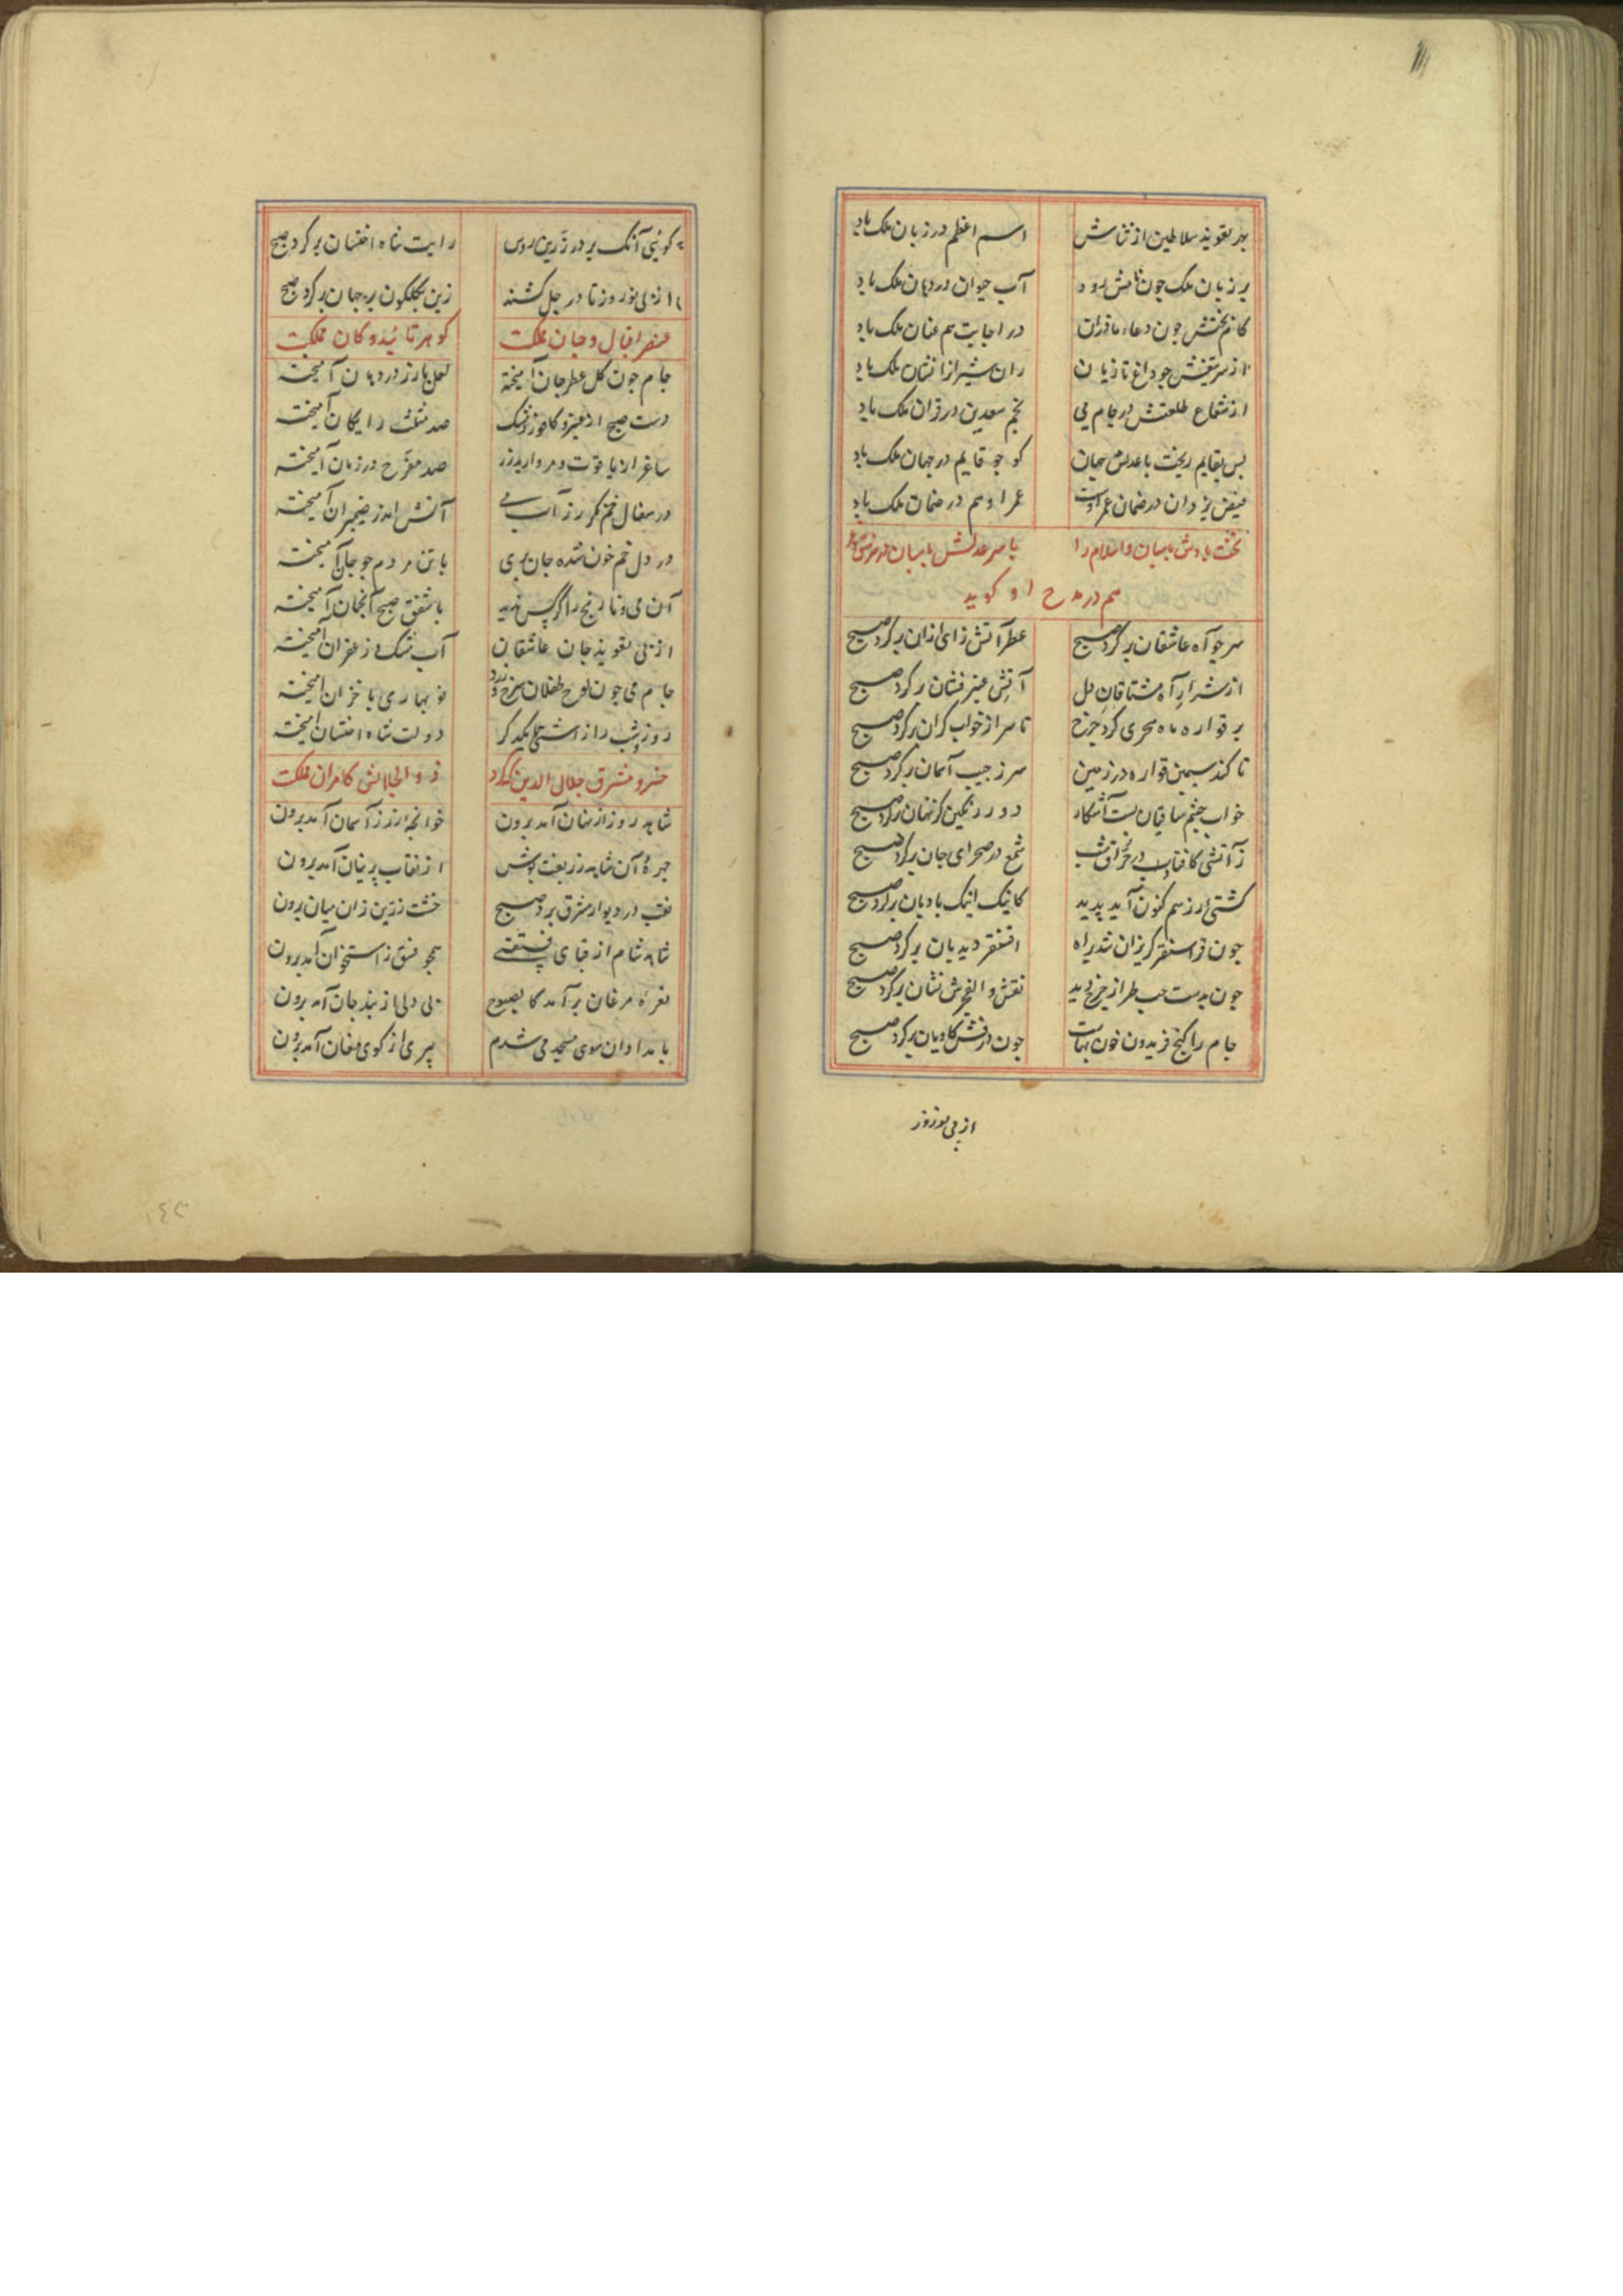 بهر تعویذ سلاطین از ثناش اسم اعظم در زبان ملک باد
بر زبان ملک چون نامش رود آب حیوان در دهان ملک باد
کام بختش چون دعاء مادران در اجابت هم عنان ملک باد
از سر تیغش چو داغ تازیان ران شیران را نشان ملک باد
از شعاع طلعتش در جام می نجم سعدین در قران ملک باد
بس بقایم ریخت با عدلش جهان کو چو قایم در جهان ملک باد
فیض یزدان در ضمان عمر اوست عمر او هم در ضمان ملک باد
تخت بادش پاسبان و اسلام را با سر عدلش پاسبان
هم در مدح او کوید
سر چو آه عاشقان بر کرد صبح عطر آتش زای ازان بر کرد صبح
از شرار آه مشتاقان دل آتش عنبر فشان بر کرد صبح
بر قواره ماه سحری کرد چرخ تا سر از خواب کران بر کرد صبح
تا کند سیمین قواره در زمین سر ز جیب آسمان بر کرد صبح
خواب چشم ساقیان بست آشکار دود رنکین کز نهان بر کرد صبح
ز آتشی کافتاب در حراق شب شمع در صحرای جان بر کرد صبح
کشتی ار زسم کنون آید پدید کاینک اینک بادبان بر کرد صبح
چون قراسنقر کریزان شد براه اقسنقر دیدبان بر کرد صبح
چون بدست چپ طراز چرخ دید نقش و الفجرش نشان بر کرد صبح
جام را کنج فریدون خون بهاست چون درفش کاویان بر کرد صبح
از پی نوروز
کوئیی آنک بر در زرین روس رایت شاه اخستان بر کرد صبح
از پی نوروز تا در جل کشند زین بکلکون بر جهان بر کرد صبح
عنصر اقبال و جان مملکت کوهر تائید و کان مملکت
جام چون کل عطر جان آمیخته لعل با زر در دهان آمیخته
دست صبح از عنبر و کافور و مشک صد مثلث رایکان آمیخته
ساغر از یاقوت و مروارید زر صد مفرح در زمان آمیخته
در سفال خم نکر زر آب می آتش اندر ضیمران آمیخته
در دل خم خون شده جان پری با تن مردم چو جان آمیخته
آن می و نارنج را کر کس ندید با شفق صبح آنچنان آمیخته
از پی تعویذ جان عاشقان آب مشک و زعفران آمیخته
جام می چون لوح طفلان سرخ و زرد نو بهاری با خزان آمیخته
روز و شب را از آشتی یکدکر دولت شاه اخستان آمیخته
خسرو مشرق جلال الدین که کرد ذو الجلالش کامران مملکت
شاهد روز از نهان آمد برون خوانچه زر ز آسمان آمد برون
چهرهٔ آن شاهد زربفت پوش از نقاب پرنیان آمد برون
نقب در دیوار مشرق برد صبح خشت زرین زان میان آمد برون
شاهد شام از قبای فستقی همچو فستق ز استخوان آمد برون
نعره مرغان بر آمد کا لصبوح بی دلی از بند جان آمد برون
بامدادان سوی مسجد می شدم پیری از کوی مغان آمد برون